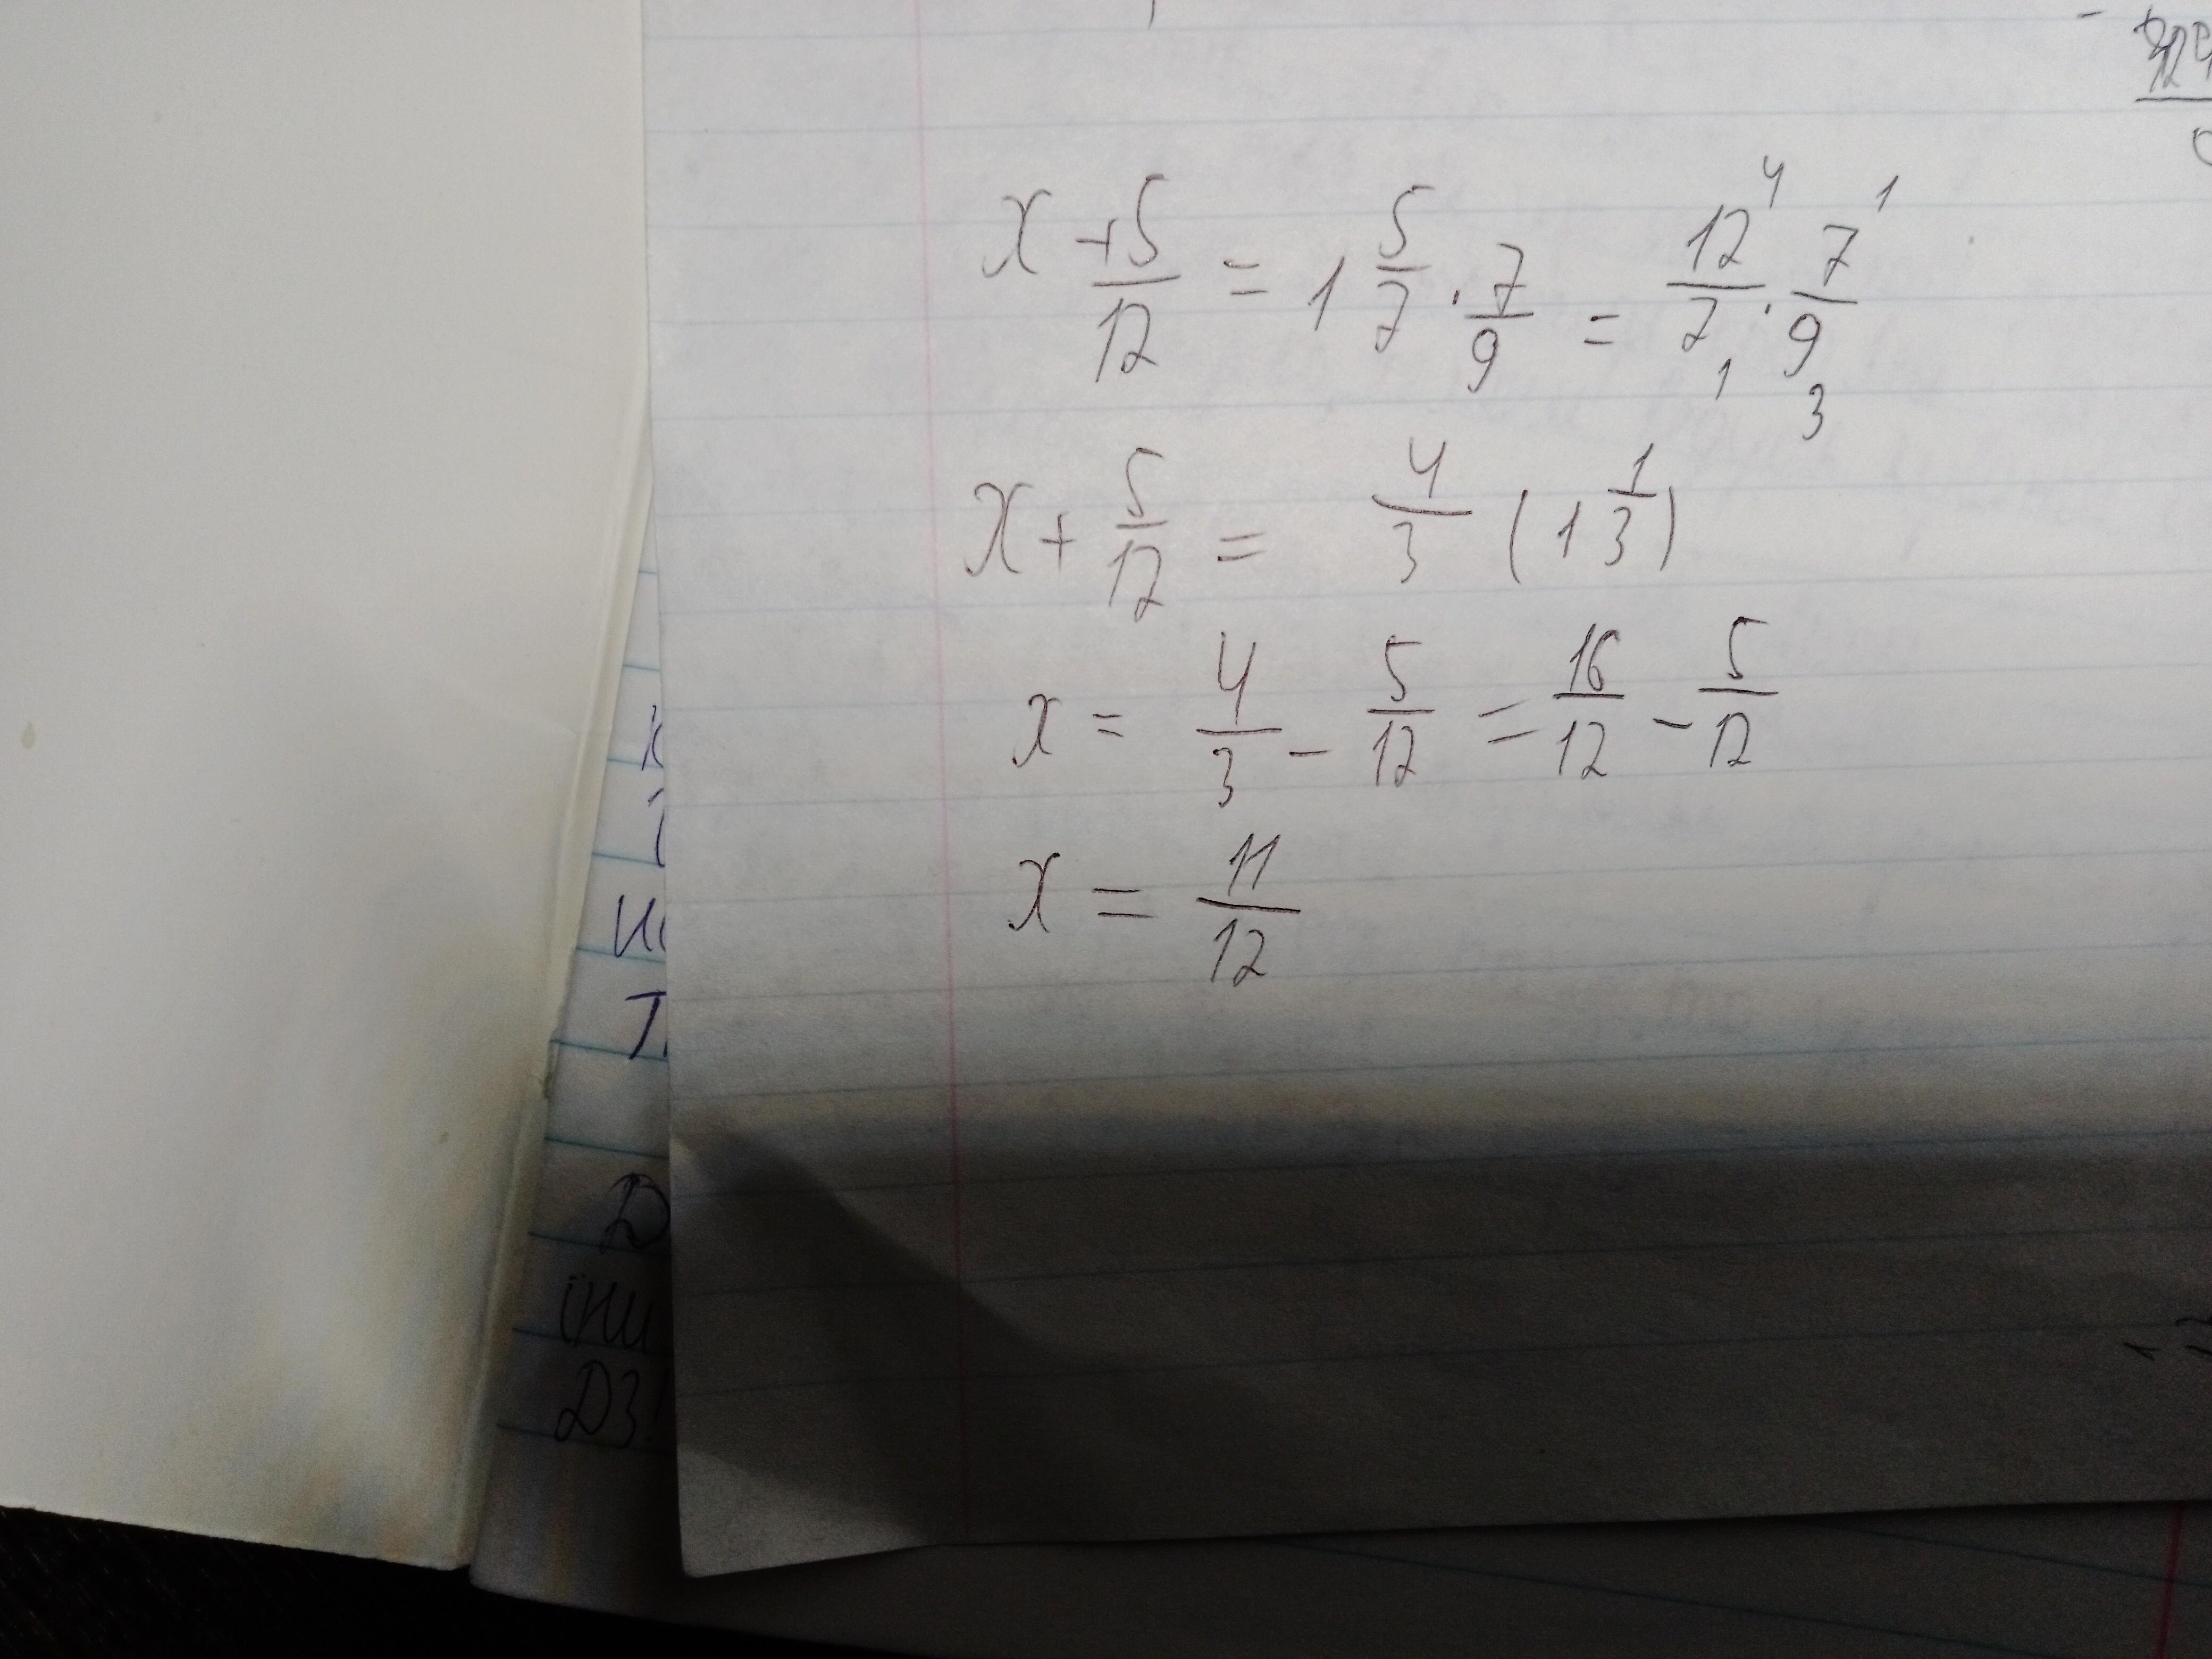 x + 5/12 = 1 5/7 · 7/9 = 12/7 · 7/9 4 1 1 3
x + 5/12 = 4/3 (1 1/3)
x = 4/3 - 5/12 = 16/12 - 5/12
x = 11/12
Д
інш
ДЗ!